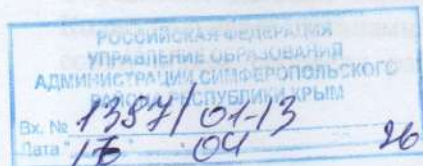 РОССИЙСКАЯ ФЕДЕРАЦИЯ
УПРАВЛЕНИЕ ОБРАЗОВАНИЯ
АДМИНИСТРАЦИИ СИМФЕРОПОЛЬСКОГО
РАЙОНА РЕСПУБЛИКИ КРЫМ
Вх. № 1387/01-13
Дата " 16 " 04 20